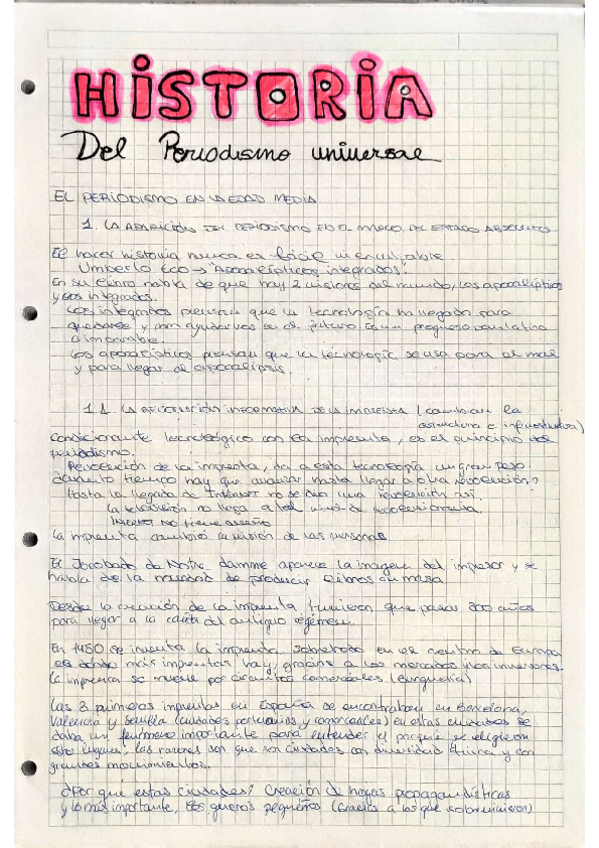 HISTORIA
Del Periodismo universal
EL PERIODISMO EN LA EDAD MEDIA
1. LA APARICIÓN DEL PERIODISMO EN EL MARCO DEL ESTADO ABSOLUTO
El hacer historia nunca es fácil ni
Umberto Eco → "Apocalípticos integrados".
En su libro habla de que hay 2 visiones del mundo, los apocalípticos
y los integrados.
Los integrados piensan que la tecnología ha llegado para
quedarse y son ayudarnos en el futuro. Es un progreso
e imparable.
Los apocalípticos piensan que la tecnología se usa para el mal
y para llegar al apocalipsis.
1.1. LA REVOLUCIÓN INFORMATIVA DE LA IMPRENTA (cambian la
estructura e infraestructura)
Condicionante tecnológico con la imprenta, es el principio del
periodismo.
Revolución de la imprenta, da a esta tecnología un gran peso
¿cuánto tiempo hay que avanzar hasta llegar a otra revolución?
Hasta la llegada de Internet no se dio una revolución así.
La televisión no llega a tal nivel de
INTERNET NO tiene
La imprenta cambió la visión de las personas
El Jorobado de Notre damme aparece la imagen del impresor y se
habla de la manera de producir libros en masa
Desde la creación de la imprenta, tuvieron que pasar 300 años
para llegar a la caída del antiguo régimen.
En 1450 se inventa la imprenta sobretodo en el centro de Europa
es donde más imprentas hay, gracias a los mercados y los inversores.
La imprenta se mueve por circuitos comerciales (Burguesía)
Las 3 primeras imprentas en España se encontraban en Barcelona,
Valencia y Sevilla (ciudades portuarias y comerciales) en estas ciudades se
daba un fenómeno importante para entender el porqué se eligieron
estos lugares, las razones son que son ciudades con diversidad étnica y con
grandes movimientos.
¿Por qué estas ciudades? Creación de hojas propagandísticas
y lo más importante, los géneros pequeños (Gracias a los que sobrevivieron)